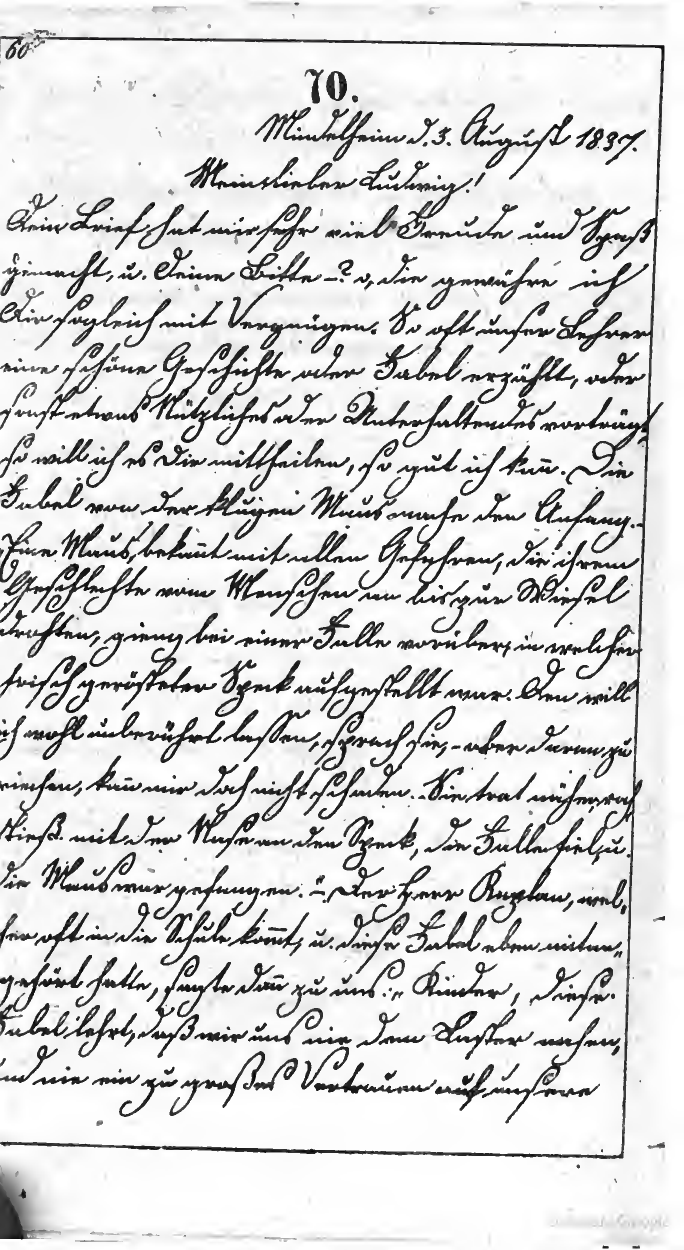 60
70.
Mindelheim d. 3. August 1837.
Mein lieber Ludwig!
Dein Brief hat mir sehr viel Freude und Spaß
gemacht, u. Deine Bitte -? o, die gewähre ich
Dir sogleich mit Vergnügen. So oft unser Lehrer
eine schöne Geschichte oder Fabel erzählt, oder
sonst etwas Nützliches oder Unterhaltendes vorträgt,
so will ich es Dir mittheilen, so gut ich kañ. Die
Fabel von der klugen Maus mache den Anfang.-
„Eine Maus, bekañt mit allen Gefahren, die ihrem
Geschlechte vom Menschen an bis zur Wiesel
drohten, gieng bei einer Falle vorüber, in welcher
frisch gerösteter Speck aufgestellt war. Den will
ich wohl unberührt lassen, sprach sie,- aber daran zu
riechen, kañ mir doch nicht schaden. Sie trat näher, roch
stieß mit der Nase an den Speck, die Falle fiel, u.
die Maus war gefangen." Der Herr Kaplan, wel-
cher oft in die Schule kom̃t, u. diese Fabel eben mitan-
gehört hatte, sagte dañ zu uns: „Kinder, diese
Fabel lehrt, daß wir uns nie dem Laster nahen,
und nie ein zu großes Vertrauen auf unsere